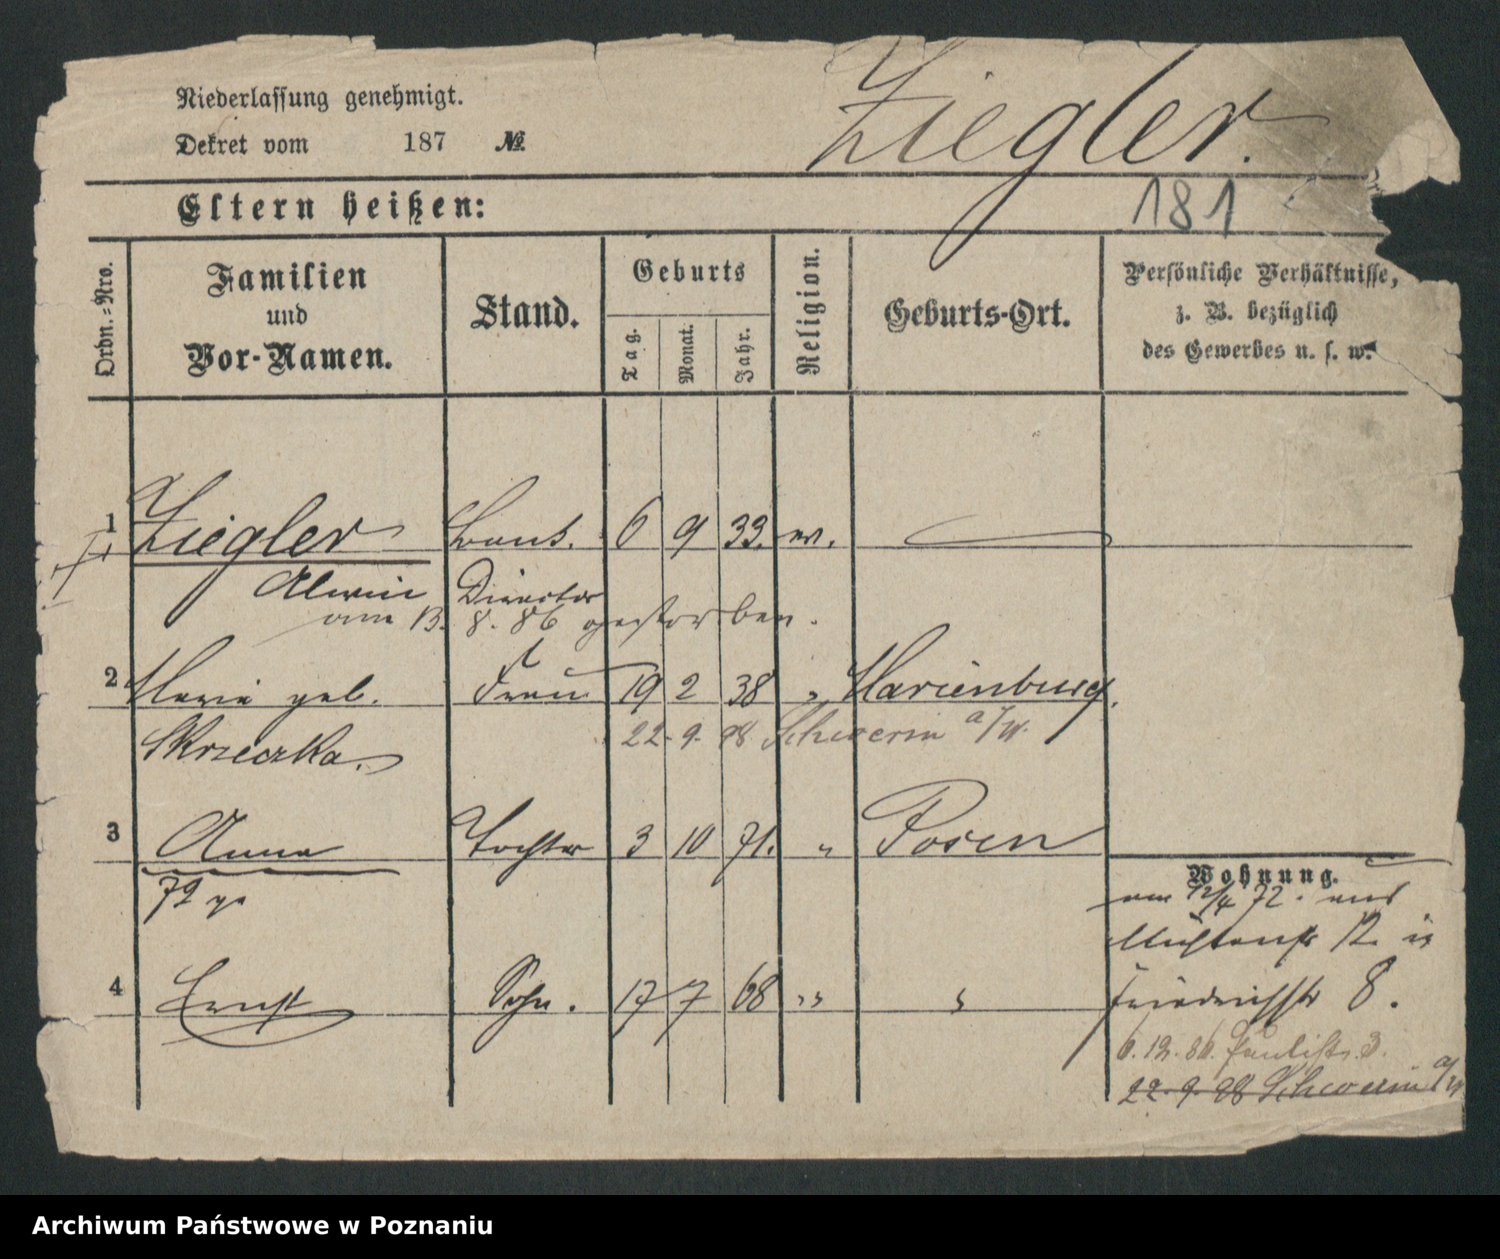 Niederlassung genehmigt.
Ziegler.
Dekret vom 187 №
Eltern heißen:
181
Ordn.-Nro.
Familien
und
Vor-Namen.
Stand.
Geburts
Tag.
Monat.
Jahr.
Religion.
Geburts-Ort.
Persönliche Verhältnisse,
z. B. bezüglich
des Gewerbes u. s. w.
1 Ziegler Bank. 6 9 33. ev.
Alwin Director
am 13. 8. 86 gestorben.
2 Marie geb. Frau 19 2 38 " Marienburg.
22. 9. 98 Schwerin a/W.
Skrzeczka.
3 Anna Tochter 3 10 71. " Posen
Wohnung.
am 12/4 72. aus
Mühlenstr 12 in
4 Ernst Sohn. 17 7 68 " "
Friedrichstr 8.
6. 12. 86. Paulistr. 3.
22. 9. 98 Schwerin a/W
Archiwum Państwowe w Poznaniu